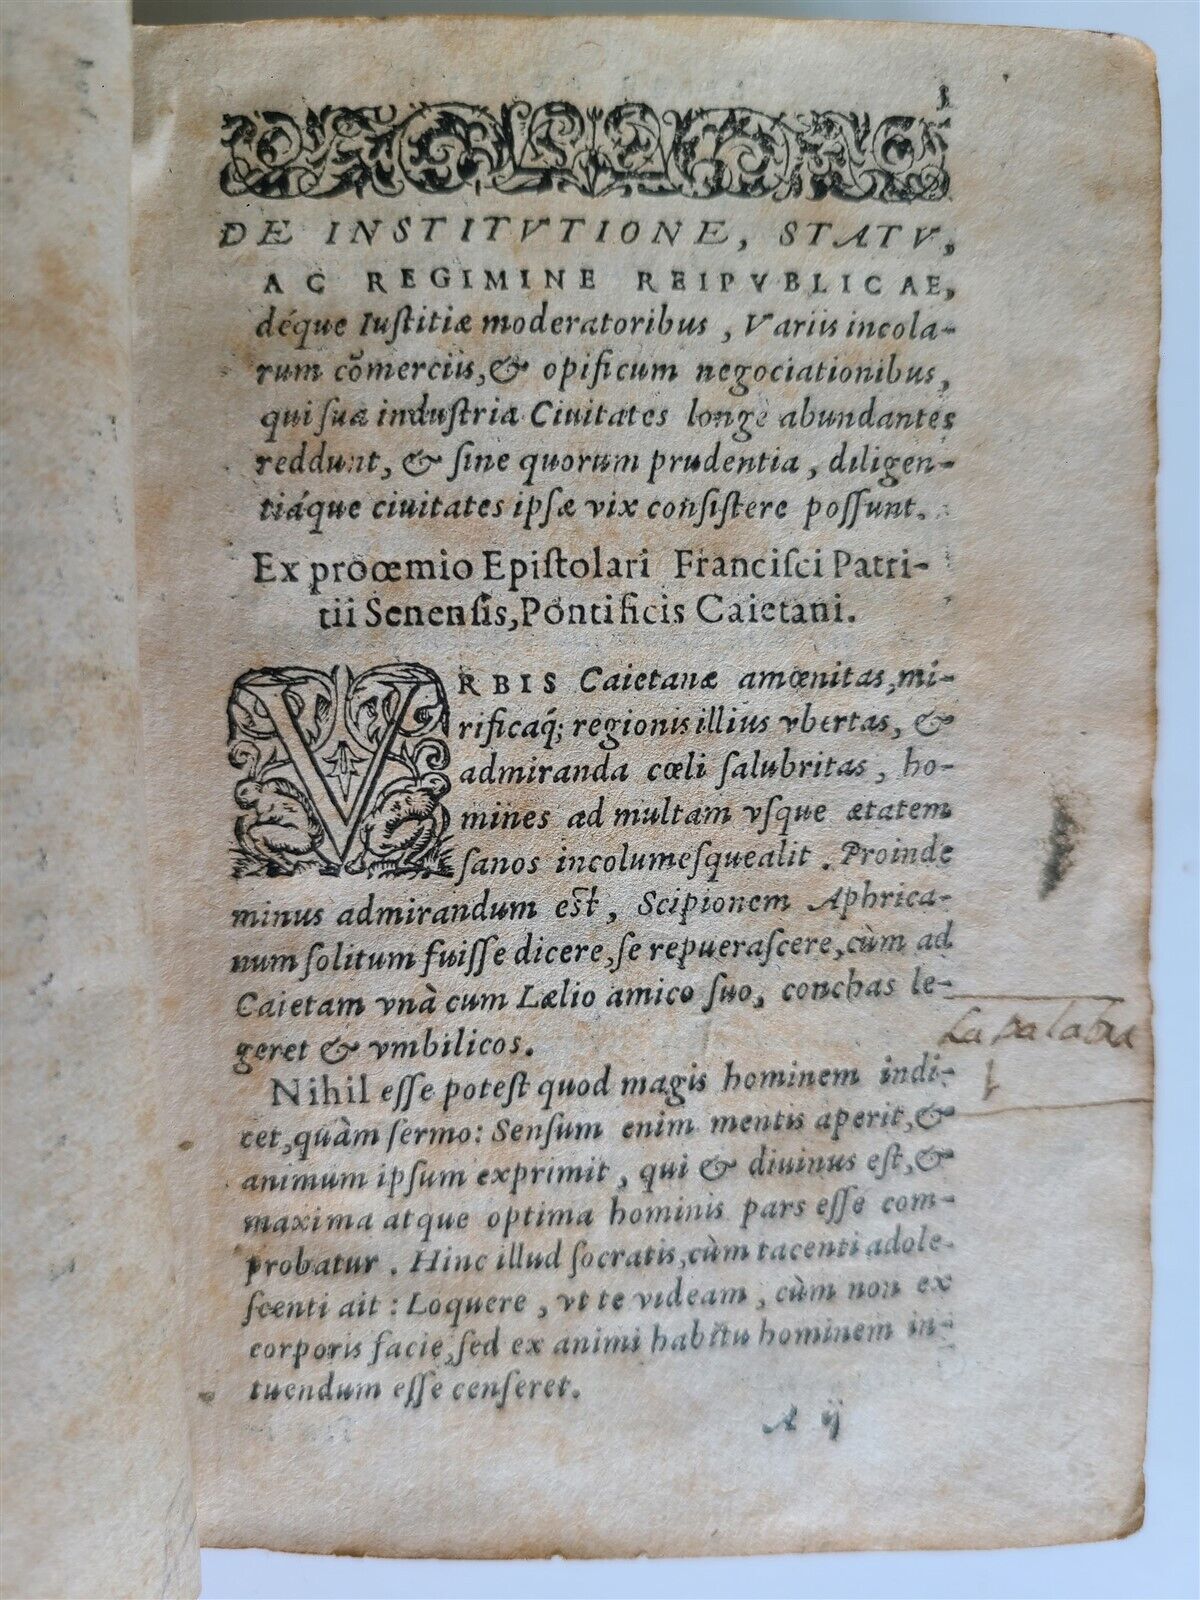 1
DE INSTITVTIONE, STATV,
AC REGIMINE REIPVBLICAE,
déque Iuſtitiæ moderatoribus, Variis incola-
rum cõmerciis, & opificum negociationibus,
qui ſua induſtria Ciuitates longè abundantes
reddunt, & ſine quorum prudentia, diligen-
tiáque ciuitates ipſæ vix conſiſtere poſſunt.
Ex proœmio Epiſtolari Franciſci Patri-
tii Senenſis, Pontificis Caietani.
VRBIS Caietanæ amœnitas, mi-
rificaq́; regionis illius vbertas, &
admiranda cœli ſalubritas, ho-
mines ad multam vſque ætatem
ſanos incolumeſquealit. Proinde
minus admirandum eſt, Scipionem Aphrica-
num ſolitum fuiſſe dicere, ſe repueraſcere, cùm ad
Caietam vnà cum Lælio amico ſuo, conchas le-
geret & vmbilicos.
Nihil eſſe poteſt quod magis hominem indi-
cet, quàm ſermo: Senſum enim mentis aperit, &
animum ipſum exprimit, qui & diuinus eſt, &
maxima atque optima hominis pars eſſe com-
probatur. Hinc illud ſocratis, cùm tacenti adole-
ſcenti ait: Loquere, vt te videam, cùm non ex
corporis facie, ſed ex animi habitu hominem in-
tuendum eſſe cenſeret.
A ij
La palabra